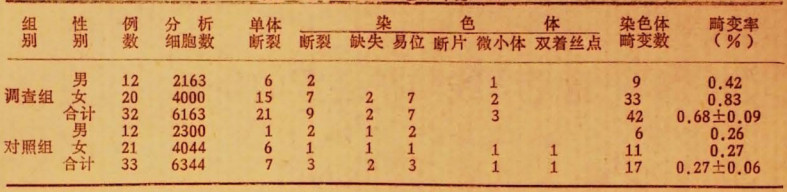 组 性 例 分析 单体 染色体 染色体 畸变率
别 别 数 细胞数 断裂 断裂 缺失 易位 断片 微小体 双着丝点 畸变数 (%)
男 12 2163 6 2 1 9 0.42
调查组 女 20 4000 15 7 2 7 2 33 0.83
合计 32 6163 21 9 2 7 3 42 0.68±0.09
男 12 2300 1 2 1 2 6 0.26
对照组 女 21 4044 6 1 1 1 1 1 11 0.27
合计 33 6344 7 3 2 3 1 1 17 0.27±0.06